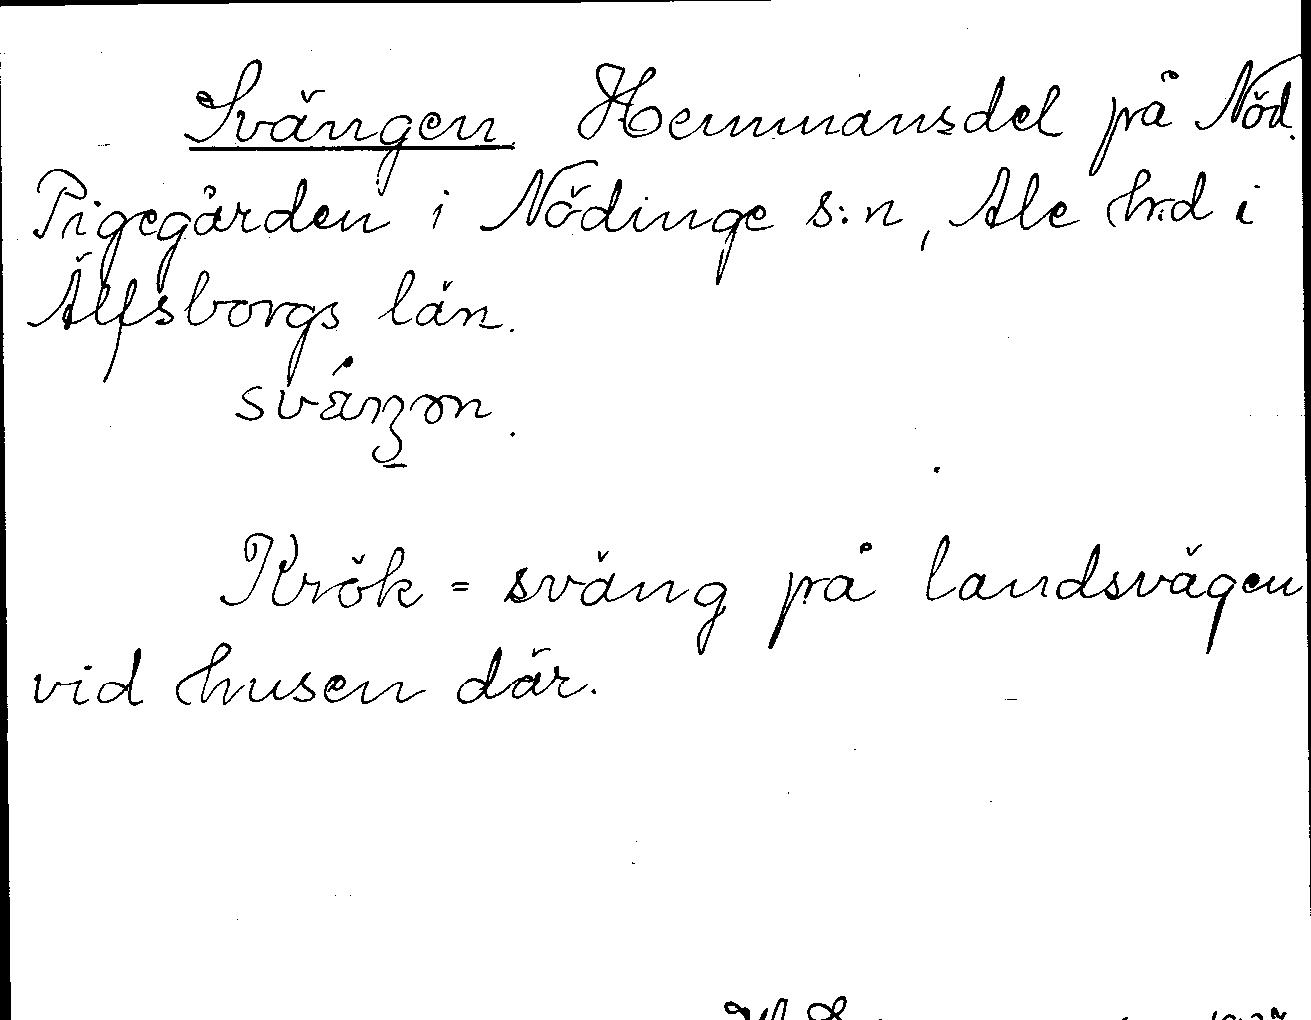 Svängen Hemmansdel på Nöd.
Pigegården i Nödinge s:n, Ale h:d i
Älfsborgs län.
Krök = sväng på landsvägen
vid husen där.